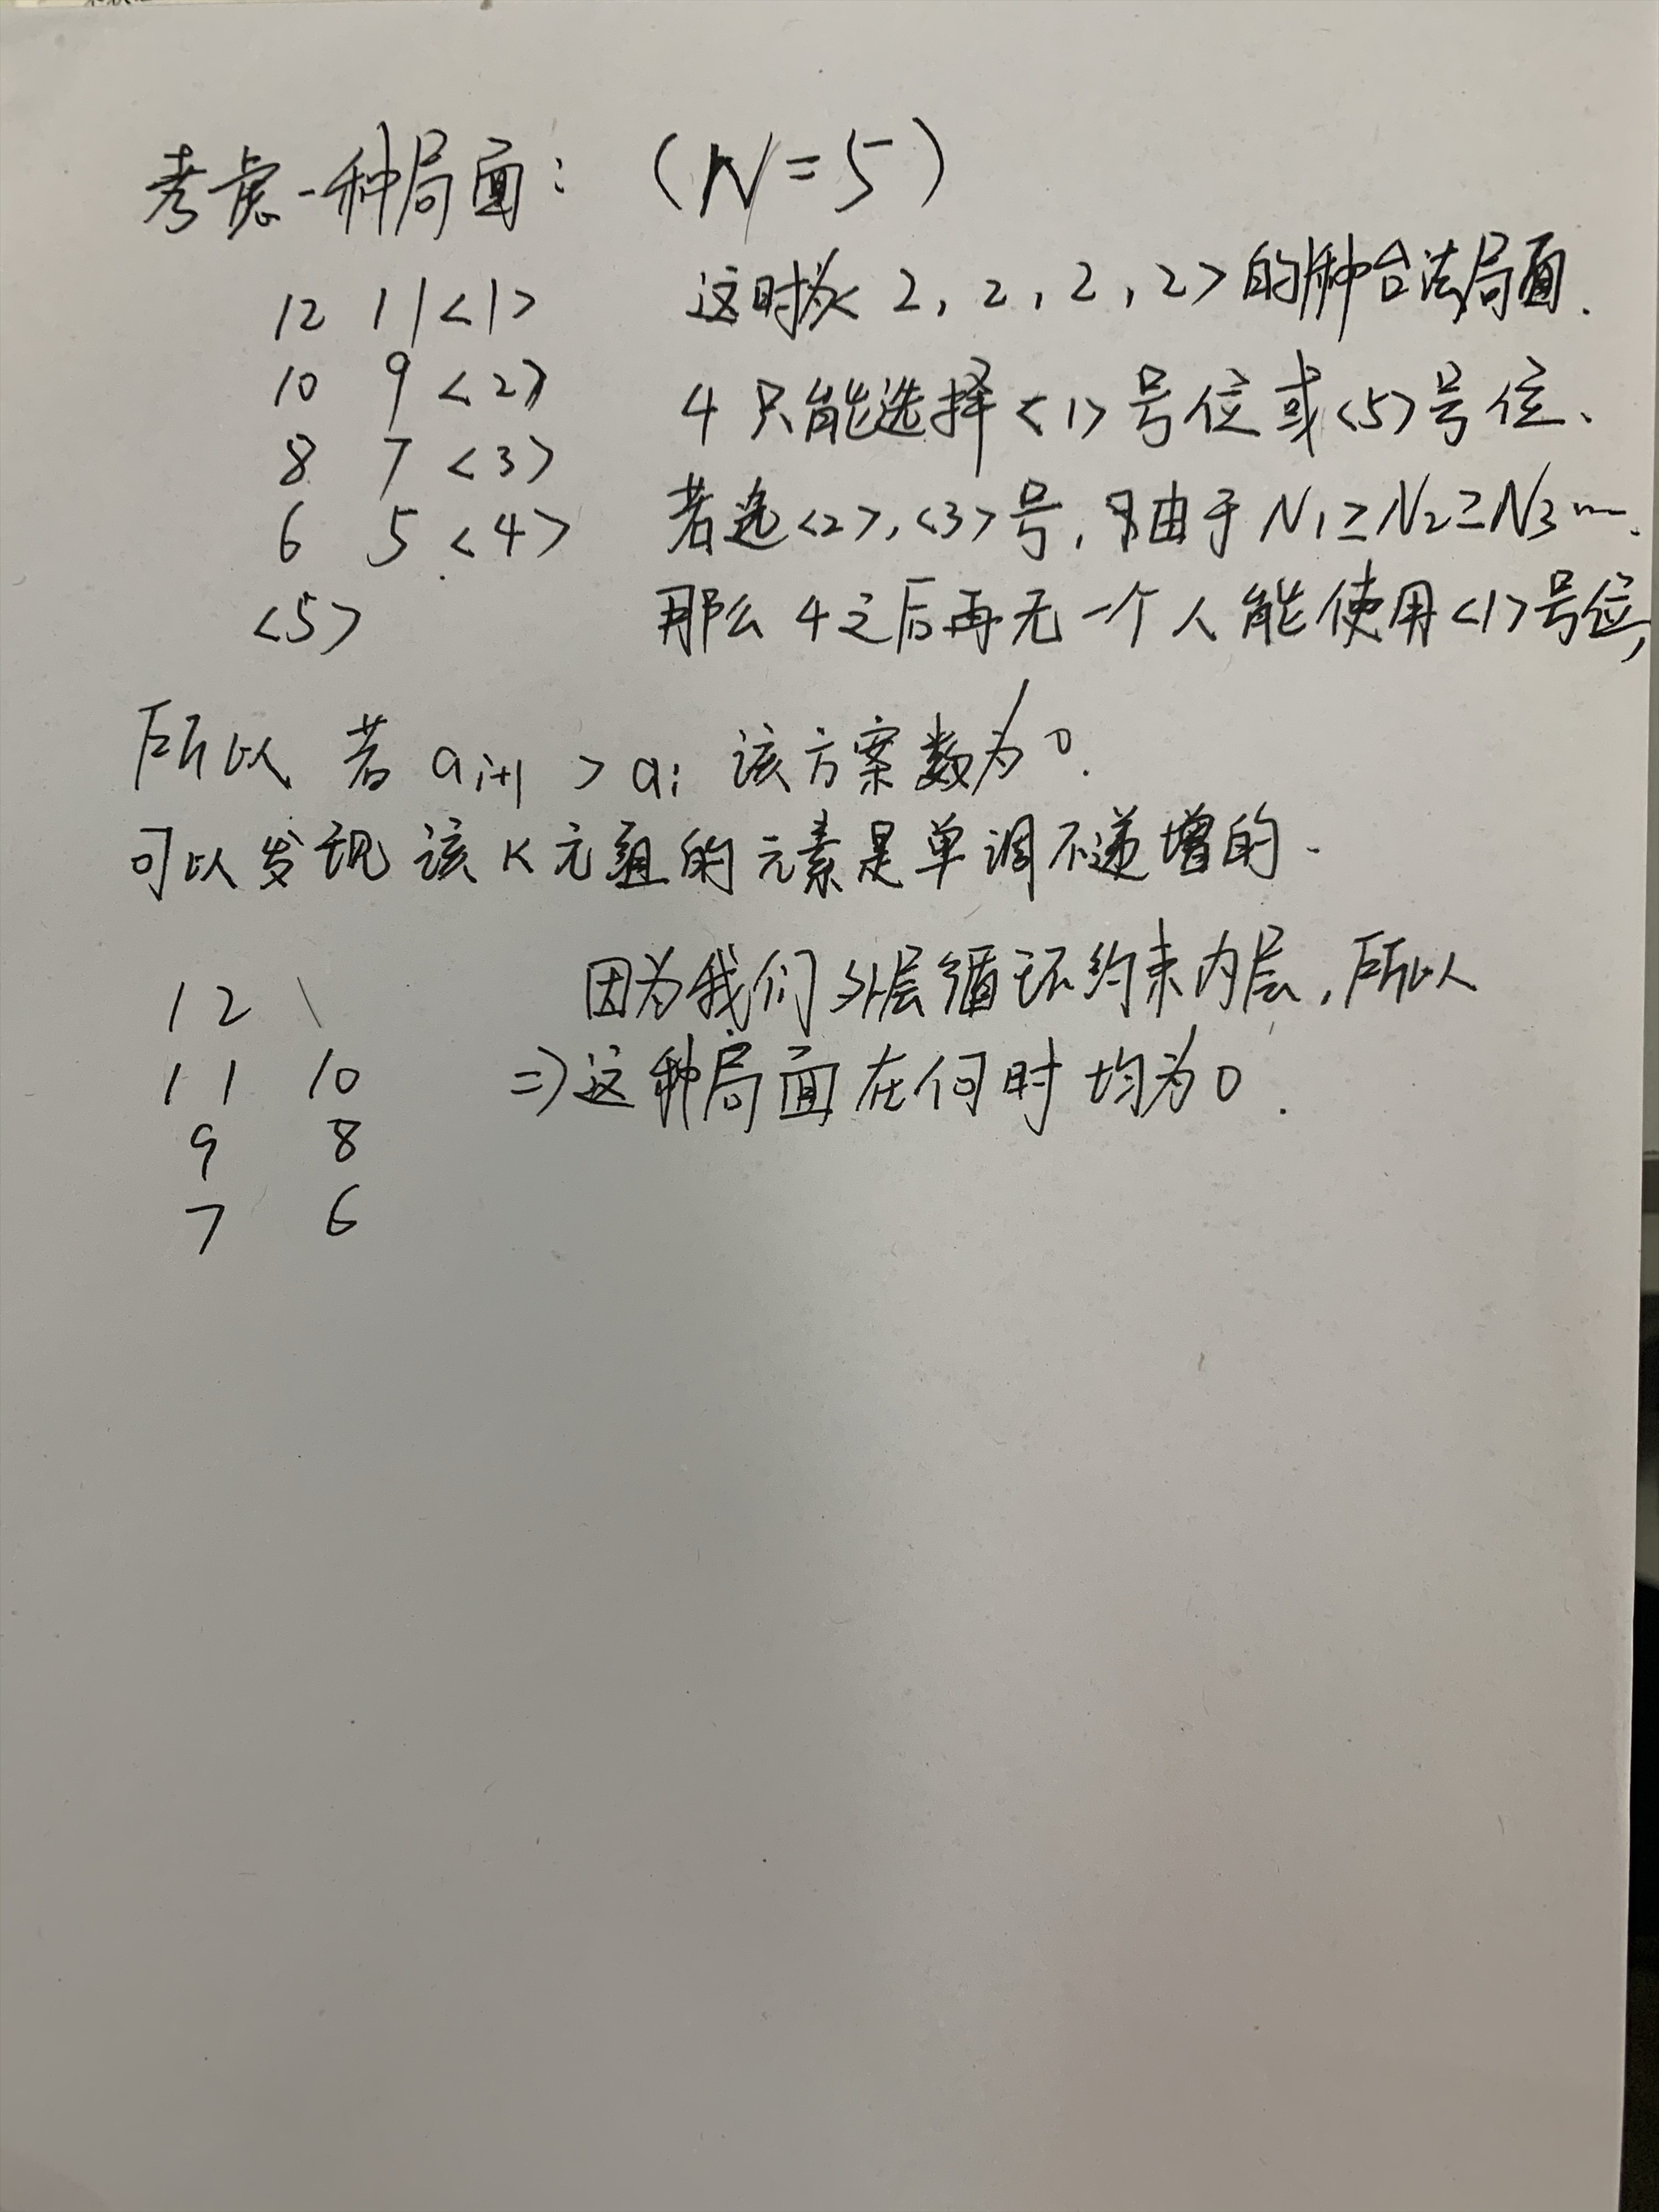 考虑一种局面： （N=5）
12 11 <1>
这时为< 2, 2, 2, 2>的种合法局面.
10 9 <2>
4 只能选择<1>号位或<5>号位、
8 7 <3>
若选<2>,<3>号, 由于 N1≥N2≥N3…
6 5 <4>
那么 4之后再无一个人能使用<1>号位,
<5>
所以 若 ai+1 > ai 该方案数为0.
可以发现 该K元组的元素是单调不递增的.
12 \
因为我们外层循环约束内层, 所以
11 10
=>这种局面在何时均为0.
9 8
7 6